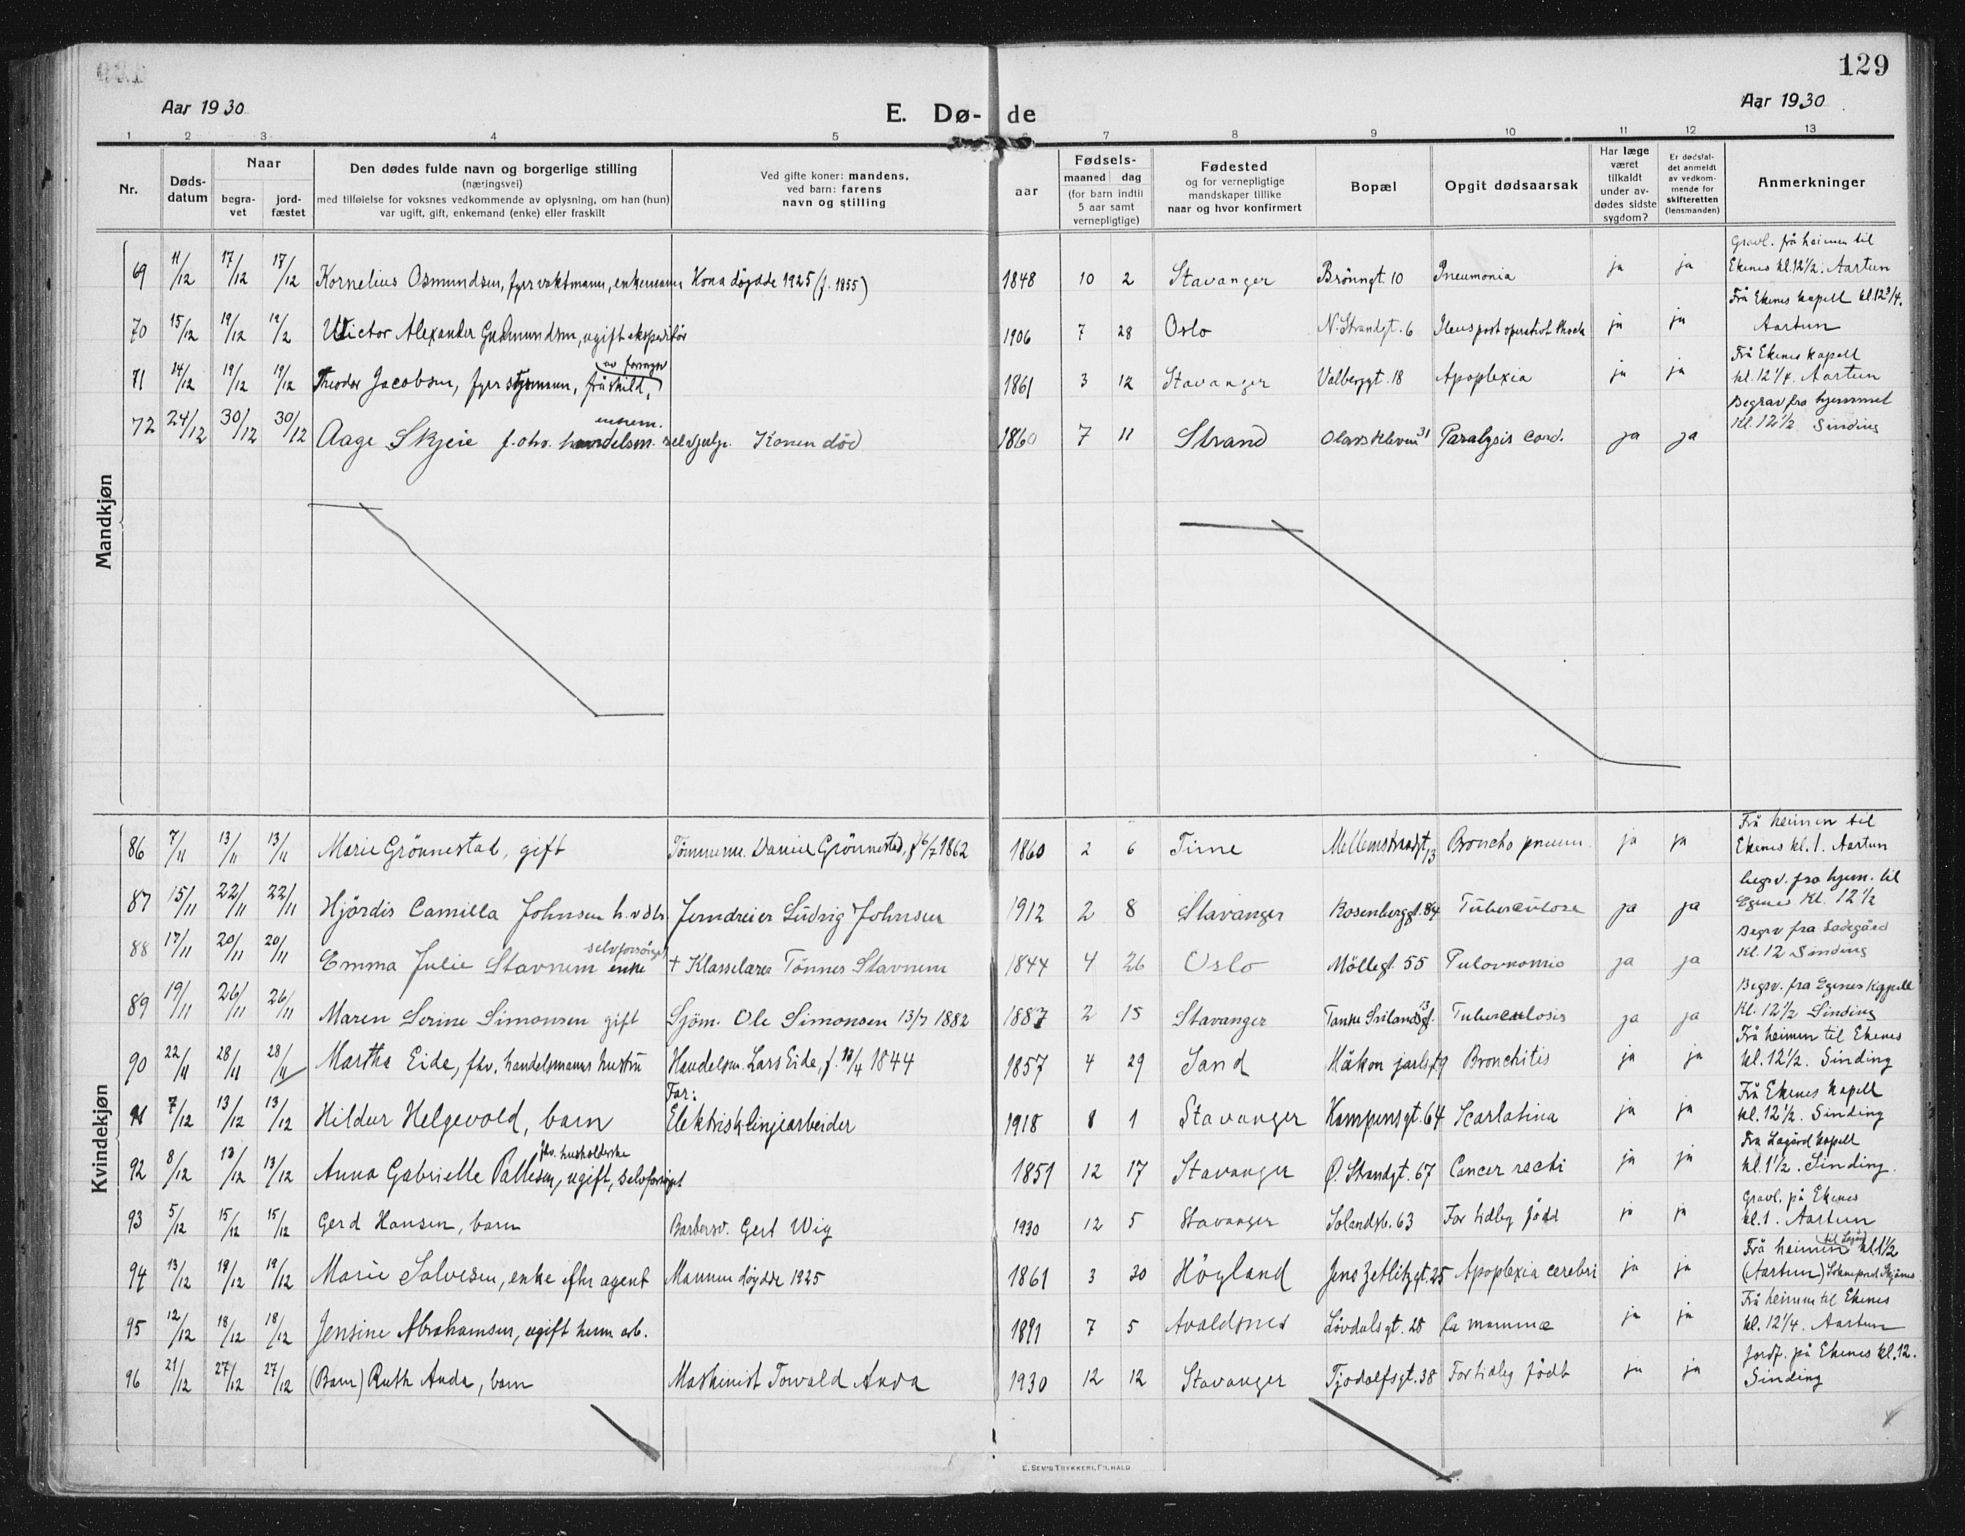 129
Aar 1930
E. Dø-
de
Aar 1930
1 2 3 4 5 6 7 8 9 10 11 12 13
Nr.
Døds-
datum
Naar
begra-
vet
jord-
fæstet
Den dødes fulde navn og borgerlige stilling
(næringsvei)
med tilføielse for voksnes vedkommende av oplysning, om han (hun)
var ugift, gift, enkemand (enke) eller fraskilt
Ved gifte koner: mandens,
ved barn: farens
navn og stilling
aar
Fødsels-
maaned dag
(for barn indtil
5 aar samt
vernepligtige)
Fødested
og for vernepligtige
mandskaper tillike
naar og hvor konfirmert
Bopæl
Opgit dødsaarsak
Har læge
været
tilkaldt
under av-
dødes sidste
sygdom?
Er dødsfal-
det anmeldt
av vedkom-
mende for
skifteretten
(lensmanden)
Anmerkninger
Mandkjøn
69 11/12 17/12 17/12 Kornelius Osmundsen, fyrr vaktmann, enkemann Kona døydde 1925 (f. 1855) 1848 10 2 Stavanger Brönngt. 10 Pneumonia ja ja Gravl. frå heimen til
Ekenes kl. 12 1/2. Aartun
70 15/12 19/12 Victor Alexander Gudmundsen, ugift ekspeditør 1906 7 28 Oslo N. Strandgt. 6 Ileus post operativt Shock ja ja Frå Ekenes kapell kl. 12 3/4.
Aartun
71 14/12 19/12 19/12 Theodor Jacobsen, fyrr 1861 3 12 Stavanger Valberggt. 18 Apoplexia ja ja Frå Ekenes kapell
kl. 12 1/4. Aartun
72 24/12 30/12 30/12 Aage Skjeie f. ohv. handelsm. enkem. Konen död 1860 7 11 Strand Olavskleven 31 Paralysis cord. ja ja Begrav fra hjemmet
Kl. 12 1/2 Sinding
Kvindekjøn
86 7/11 13/11 13/11 Marie Grönnestad, gift Tömmerm. Daniel Grönnestad, 1862 1860 2 6 Time Mellemstraedgt. 13 Broncho pneum. ja ja Frå heimen til
Ekenes kl. 1. Aartun
87 15/11 22/11 22/11 Hjördis Camilla Johnsen h.v.dtr. Jerndreier Ludvig Johnsen 1912 2 8 Stavanger Rosenberggt. 84 Tuberculose ja ja begrv. fra hjem. til
Egenes kl. 12 1/2
88 17/11 20/11 20/11 Emma Julie Stavnem enke + Klasselærer Tönnes Stavnem 1844 4 26 Oslo Möllegt. 55 ja ja Begrv fra Ladegård
kl. 12 Sinding
89 19/11 26/11 26/11 Maren Serine Simonsen gift Sjöm. Ole Simonsen 13/7 1882 1887 2 15 Stavanger Tanke Svilandsgt. 13 Tuberculosis ja ja Begrv. fra Egenes Kapell
Kl. 12 1/2 Sinding
90 22/11 28/11 28/11 Martha Eide, fhv. handelsmanns hustru Handelsm. Lars Eide, f. 1844 1857 4 29 Sand Håkon jarlsgt. 9 Bronchitis ja ja Frå heimen til Ekenes
kl. 12 1/2. Sinding
91 7/12 13/12 13/12 Hildur Helgevold, barn Far:
Elektrisk linjearbeider 1918 8 1 Stavanger Kampensgt. 64 Scarlatina ja ja Frå Ekenes kapell
kl. 12 1/2. Sinding
92 8/12 13/12 13/12 Anna Gabrielle Pallesen, fhv. husholderske ugift, selvforsörget 1851 12 17 Stavanger Ø. Strandgt. 67 Cancer recti ja ja Fra Lagård kapell
kl. 1 1/2. Sinding.
93 5/12 15/12 15/12 Gerd Hansen, barn Barbersv. Gert Wig 1930 12 5 Stavanger Solandsb. 63 For tidleg född ja ja Gravl. på Ekenes
kl. 1. Aartun
94 13/12 19/12 19/12 Marie Salvesen, enke eftr agent Mannen døydde 1925 1861 3 30 Höyland Jens Zetlitzgt. 25 Apoplexia cerebri ja ja Frå heimen til Lagård kl. 1 1/2
(Aartun)
95 12/12 18/12 18/12 Jensine Abrahamsen, ugift heim arb. 1891 7 5 Avaldsnes Lövdalsgt. 25 Ca mammæ ja ja Frå heimen til Ekenes
kl. 12 1/4. Aartun
96 21/12 27/12 27/12 (Barn) Ruth Anda, barn Maskinist Torvald Anda 1930 12 12 Stavanger Tjodolfsgt. 38 For tidleg födt ja ja Jordf. på Ekenes kl. 12.
Sinding
E. SEM'S TRYKKERI, FR.HALD